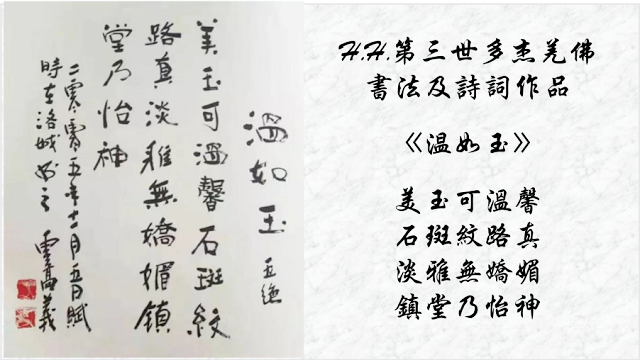 溫如玉 五絕
美玉可溫馨石斑紋
路真淡雅無嬌媚鎮
堂乃怡神
二零零五年 月五日賦
時在洛城 之 雲高義
H.H.第三世多杰羌佛
書法及詩詞作品
《温如玉》
美玉可溫馨
石斑紋路真
淡雅無嬌媚
鎮堂乃怡神